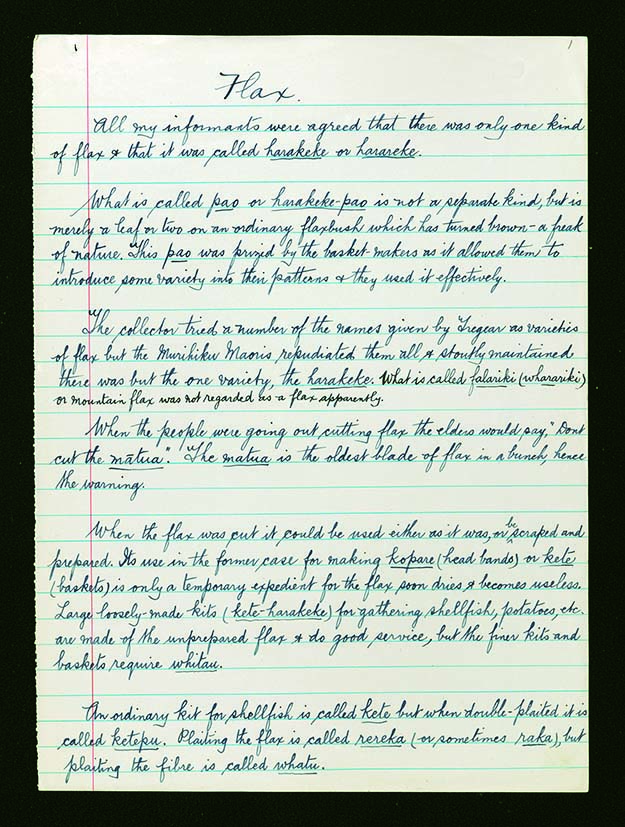 1
Flax.
All my informants were agreed that there was only one kind
of flax & that it was called harakeke or harareke.
What is called pao or harakeke-pao is not a separate kind, but is
merely a leaf or two on an ordinary flaxbush which has turned brown - a freak
of nature. This pao was prized by the basket makers as it allowed them to
introduce some variety into their patterns & they used it effectively.
The collector tried a number of the names given by Tregear as varieties
of flax but the Murihiku Maoris repudiated them all & stoutly maintained
there was but the one variety, the harakeke. What is called falariki (wharariki)
or mountain flax was not regarded as a flax apparently.
When the people were going out cutting flax the elders would say, "Dont
cut the mātua". The matua is the oldest blade of flax in a bunch, hence
the warning.
When the flax was cut it could be used either as it was, or be scraped and
prepared. Its use in the former case for making kopare (head bands) or kete
(baskets) is only a temporary expedient for the flax soon dries & becomes useless.
Large loosely-made kits (kete-harakeke) for gathering shellfish, potatoes, etc.
are made of the unprepared flax & do good service, but the finer kits and
baskets require whitau.
An ordinary kit for shellfish is called kete but when double-plaited it is
called ketepu. Plaiting the flax is called rereka (or sometimes raka), but
plaiting the fibre is called whatu.